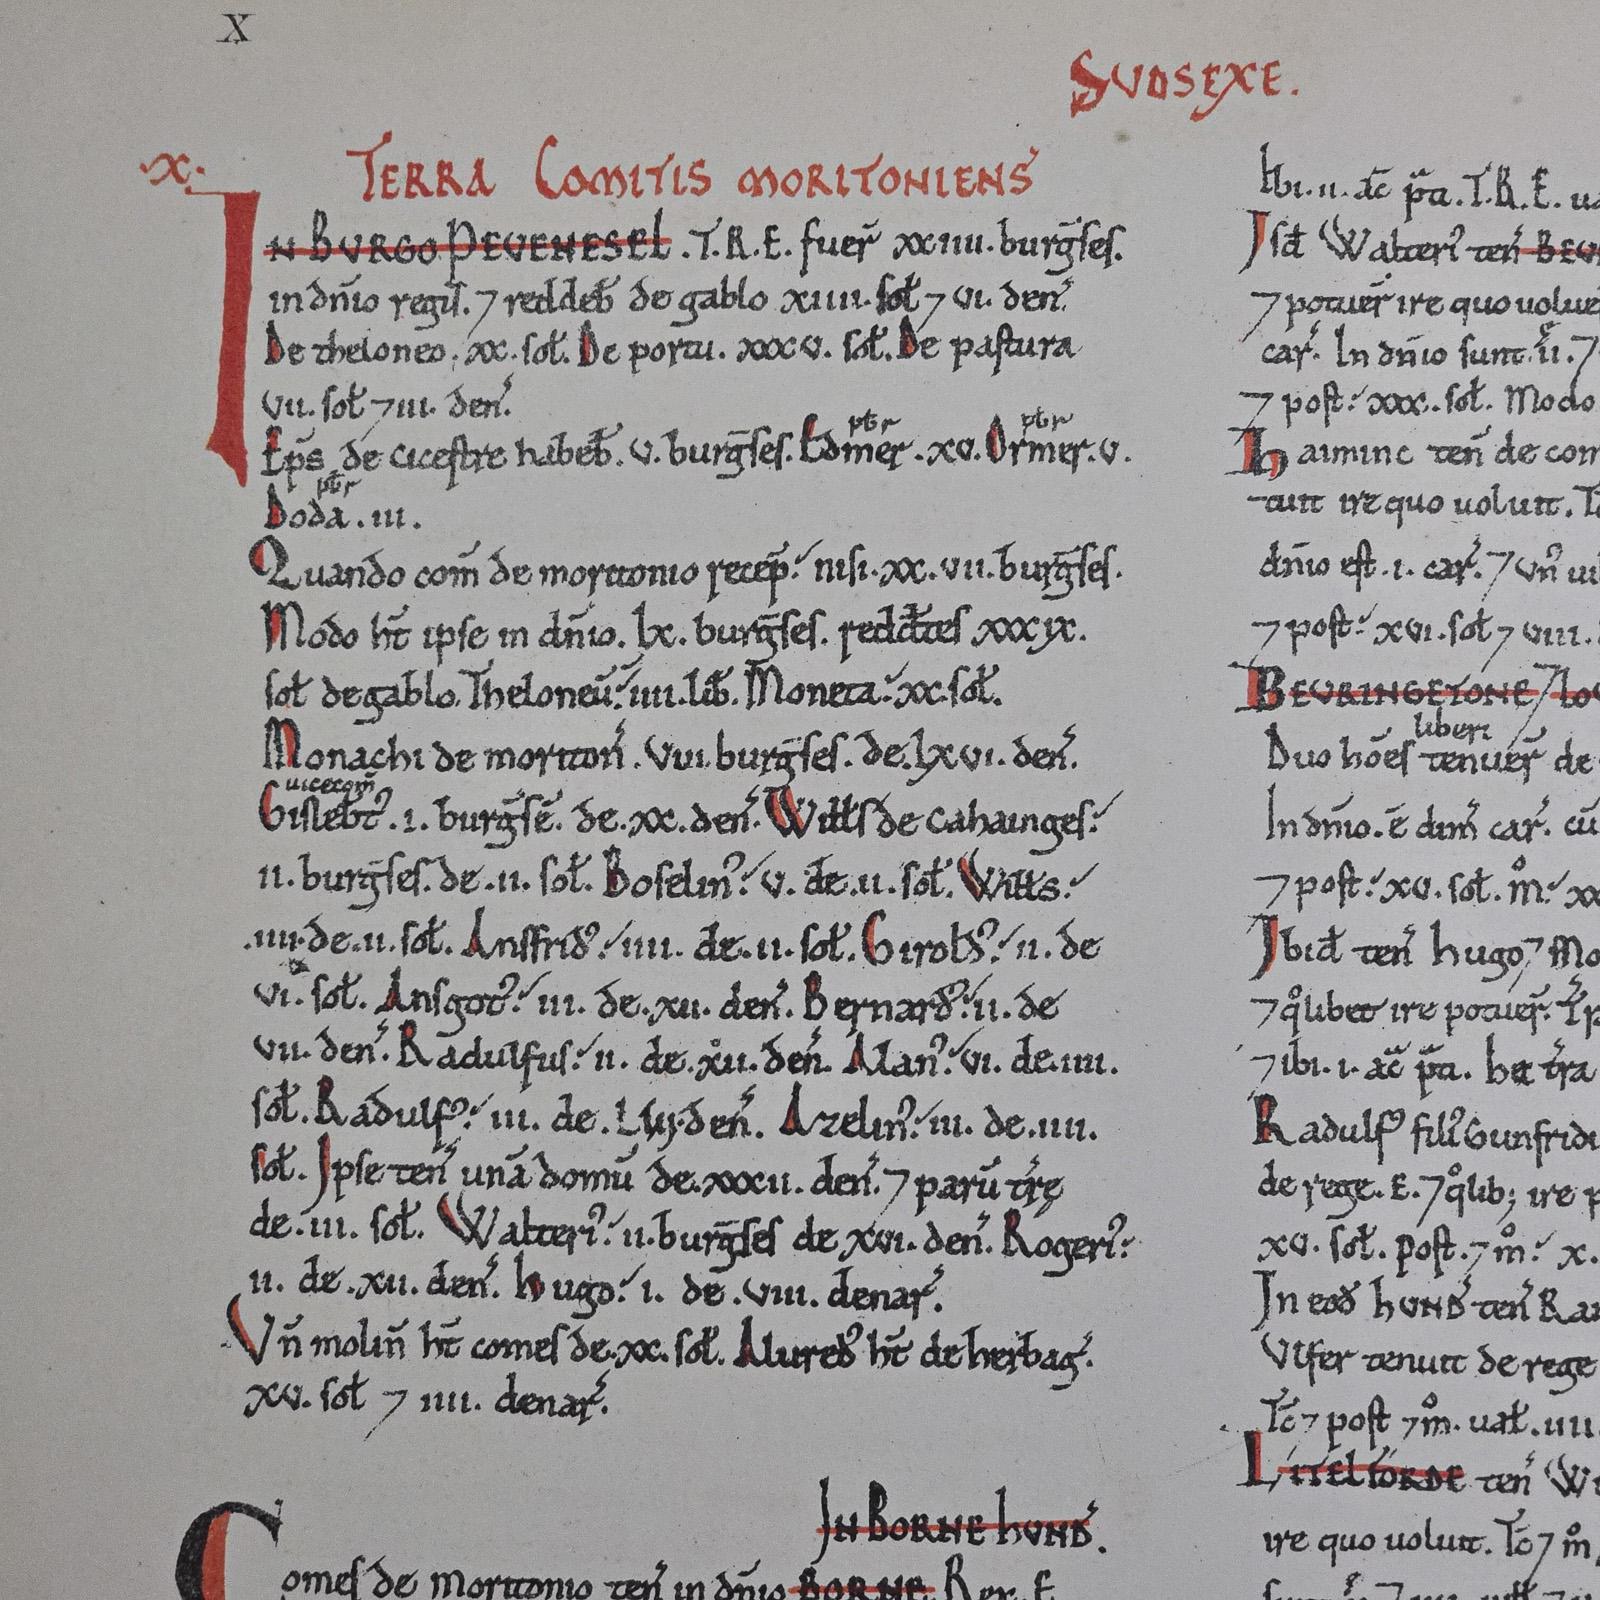 X
SUDSEXE.
.X. TERRA COMITIS MORITONIENS̄
IN BURGO PEVENESEL. T.R.E. fuer̄ xxiiii. burgses̄.
in dn̄io regis. ⁊ reddeb̄ de gablo xiiii. sol̄ ⁊ vi. den̄.
De theloneo. xx. sol̄. De portu. xxxv. sol̄. De pastura
vii. sol̄ ⁊ iii. den̄.
Ep̄s de cicestre habeb̄. v. burgses̄. Edmer pb̄r. xv. Ormer pb̄r. v.
Doda pb̄r. iii.
Quando com̄ de moritonio recep̄: nisi. xx. vii. burgses̄.
Modo ht̄ ipse in dn̄io. lx. burgses̄. reddt̄es xxxix.
sol̄ de gablo. Theloneū: iiii. lib̄. Moneta: xx. sol̄.
Monachi de moriton̄. viii. burgses̄. de. lxvi. den̄.
Gislebt᷒ vicecom̄. i. burgsē. de. xx. den̄. Witts de cahainges:
ii. burgses̄. de. ii. sol̄. Boselin᷒: v. de. ii. sol̄. Witts:
.iiii. de. ii. sol̄. Ansfrid᷒: iiii. de. ii. sol̄. Girold᷒: ii. de
vi. sol̄. Ansgot᷒: iii. de. xii. den̄. Bernard᷒: ii. de
vii. den̄. Radulfus: ii. de. xii. den̄. Alan᷒: vi. de. iiii.
sol̄. Radulf᷒: iii. de. Liij. den̄. Azelin᷒: iii. de. iiii.
sol̄. Ipse ten̄ unā domū de. xxxii. den̄. ⁊ parū tr̄ę
de. iii. sol̄. Walteri᷒: ii. burgses̄ de xvi. den̄. Rogeri᷒:
ii. de. xii. den̄. hugo: i. de. viii. denar̄.
Vn̄ molin̄ ht̄ comes de. xx. sol̄. Alured᷒ ht̄ de herbaḡ.
xv. sol̄ ⁊ iiii. denar̄.
IN BORNE HUND̄.
Comes de moritonio ten̄ in dn̄io BORNE. Rex. E.
Ibi. ii. ac̄ p̄ti. T.R.E.
Isd̄ Walteri᷒ ten̄
⁊ potuer̄ ire quo
car̄. In dn̄io sunt. ii. ⁊
⁊ post: xxx. sol̄. Modo
haiminc ten̄ de
tuit ire quo voluit.
dn̄io est. i. car̄. ⁊ un̄
⁊ post: xvi. sol̄ ⁊ viii.
BEVRINGETONE
Duo hōes liberi tenuer̄ de
In dn̄io. ē dim̄ car̄. cū
⁊ post: xv. sol̄. m̊:
Ibid̄ ten̄ hugo. ⁊
⁊ q̊libet ire potuer̄.
⁊ ibi. i. ac̄ p̄ti. hęc tr̄a
Radulf᷒ fili᷒ Gunfridi
de rege. E. ⁊ q̊lib; ire
xv. sol̄. post. ⁊ m̊: x.
In eod̄ HUND̄ ten̄
Vlfer tenuit de rege
Tc̄ ⁊ post ⁊ m̊. val̄. iiii.
LITELFORDE ten̄
ire quo voluit. Tc̄ ⁊ m̊